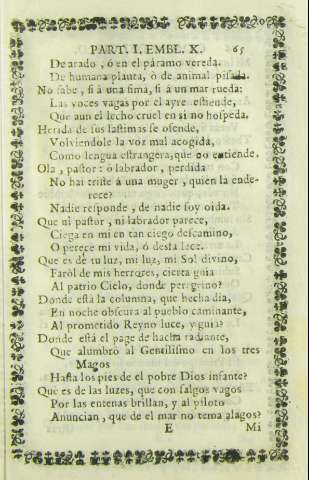 PART. I. EMBL. X. 65
De arado, ó en el páramo vereda.
De humana planta, ò de animal pisada.
No sabe, si à una sima, si à un mar rueda:
Las voces vagas por el ayre estiende,
Que aun el lecho cruel en si no hospeda.
Herida de sus lastimas se ofende,
Volviendole la voz mal acogida,
Como lengua estrangera, que no entiende.
Ola, pastor: ò labrador, perdida
No hai triste á una muger, quien la ende-
rece?
Nadie responde, de nadie soy oida.
Que ni pastor, ni labrador parece,
Ciega en mi en tan ciego descamino,
O perece mi vida, ó desfallece.
Que es de tu luz, mi luz, mi Sol divino,
Faról de mis herrores, cierta guia
Al patrio Cielo, donde peregrino?
Donde està la columna, que hecha dia,
En noche obscura al pueblo caminante,
Al prometido Reyno luce, y guia?
Donde está el page de hacha radiante,
Que alumbrò al Gentilismo en los tres
Magos
Hasta los pies de el pobre Dios infante?
Que es de las luces, que con falgos vagos
Por las entenas brillan, y al piloto
Anuncian, que de el mar no tema alagos?
E Mi